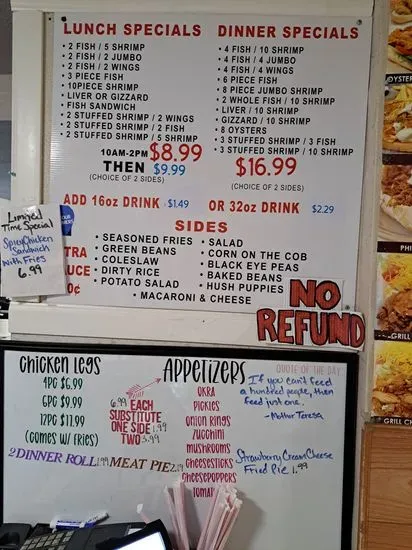 LUNCH SPECIALS
• 2 FISH / 5 SHRIMP
• 2 FISH / 2 JUMBO
• 2 FISH / 2 WINGS
• 3 PIECE FISH
• 10PIECE SHRIMP
• LIVER OR GIZZARD
• FISH SANDWICH
• 2 STUFFED SHRIMP / 2 WINGS
• 2 STUFFED SHRIMP / 2 FISH
• 2 STUFFED SHRIMP / 5 SHRIMP
10AM-2PM $8.99
THEN $9.99
(CHOICE OF 2 SIDES)
DINNER SPECIALS
• 4 FISH / 10 SHRIMP
• 4 FISH / 4 JUMBO
• 4 FISH / 4 WINGS
• 6 PIECE FISH
• 8 PIECE JUMBO SHRIMP
• 2 WHOLE FISH / 10 SHRIMP
• LIVER / 10 SHRIMP
• GIZZARD / 10 SHRIMP
• 8 OYSTERS
• 3 STUFFED SHRIMP / 3 FISH
• 3 STUFFED SHRIMP / 10 SHRIMP
$16.99
(CHOICE OF 2 SIDES)
ADD 16oz DRINK - $1.49 OR 32oz DRINK $2.29
SIDES
• SEASONED FRIES
• GREEN BEANS
• COLESLAW
• DIRTY RICE
• POTATO SALAD
• SALAD
• CORN ON THE COB
• BLACK EYE PEAS
• BAKED BEANS
• HUSH PUPPIES
• MACARONI & CHEESE
TRA
UCE
0¢
Limited
Time Special
Spicy Chicken
Sandwich
With Fries
6.99
NO
REFUND
Chicken Legs
4PC $6.99
6PC $9.99
12PC $11.99
(Comes w/ Fries)
2 DINNER ROLL 1.99
MEAT PIE 2.19
6.99
EACH
SUBSTITUTE
ONE SIDE 1.99
TWO 3.99
APPETIZERS
OKRA
PICKLES
ONION RINGS
ZUCCHINI
MUSHROOMS
CHEESESTICKS
CHEESEPOPPERS
TOMA
QUOTE OF THE DAY
If you can't feed
a hundred people, then
feed just one.
-Mother Teresa
Strawberry Cream Cheese
Fried Pie 1.99
OYSTER
PHI
GRILL
GRILL C